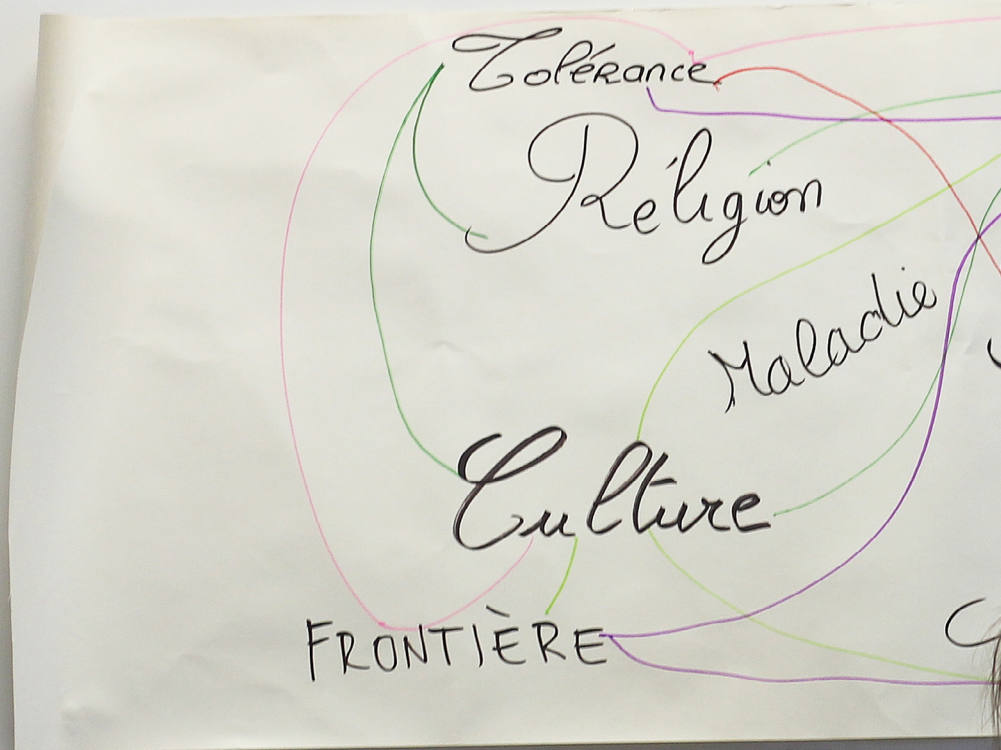 Tolérance
Réligion
Maladie
Culture
FRONTIÈRE